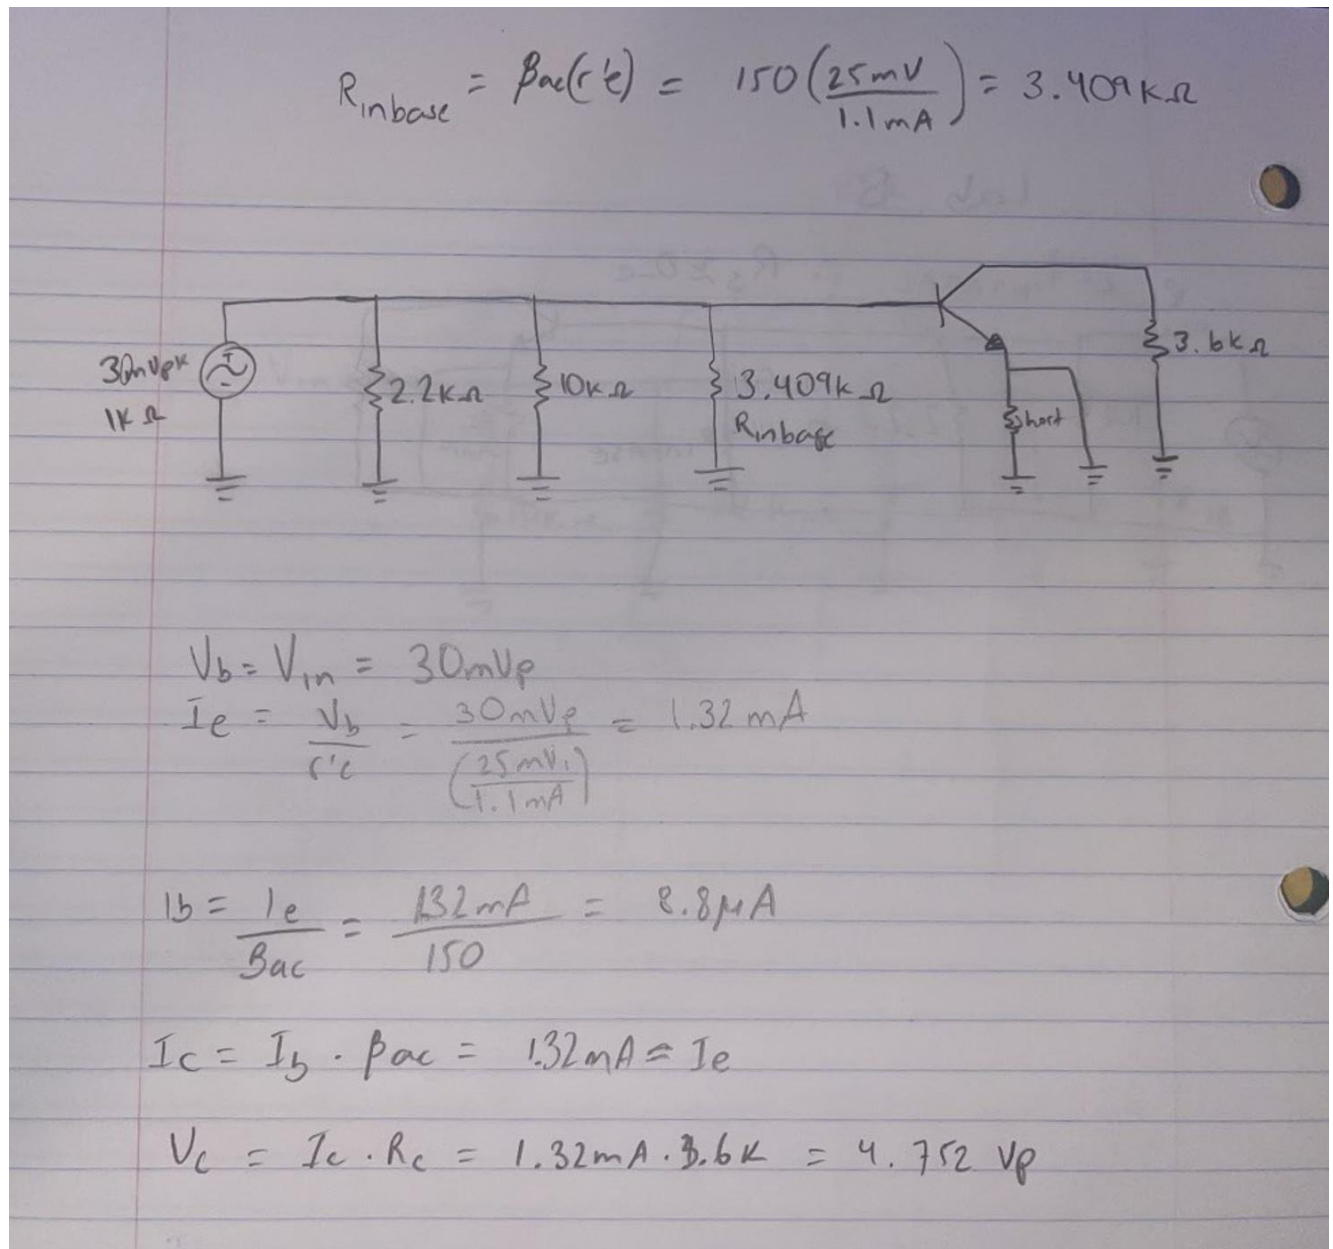 Rinbase = βac(r'e) = 150(25mV/1.1mA) = 3.409kΩ
30mVpk
1kΩ
2.2kΩ
10kΩ
3.409kΩ
Rinbase
short
3.6kΩ
Vb = Vin = 30mVp
Ie = Vb/r'e = 30mVp/(25mV/1.1mA) = 1.32mA
Ib = Ie/Bac = 1.32mA/150 = 8.8μA
Ic = Ib · βac = 1.32mA = Ie
Vc = Ic · Rc = 1.32mA · 3.6K = 4.752 Vp